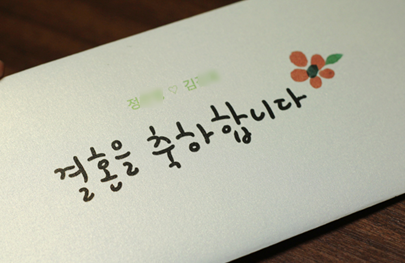 정 ♡ 김
결혼을 축하합니다